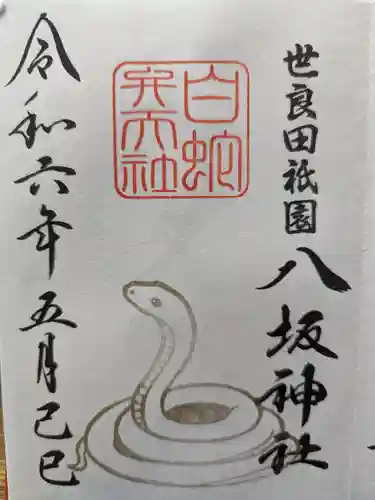 世良田祇園
八坂神社
白蛇
弁天社
令和六年五月己巳